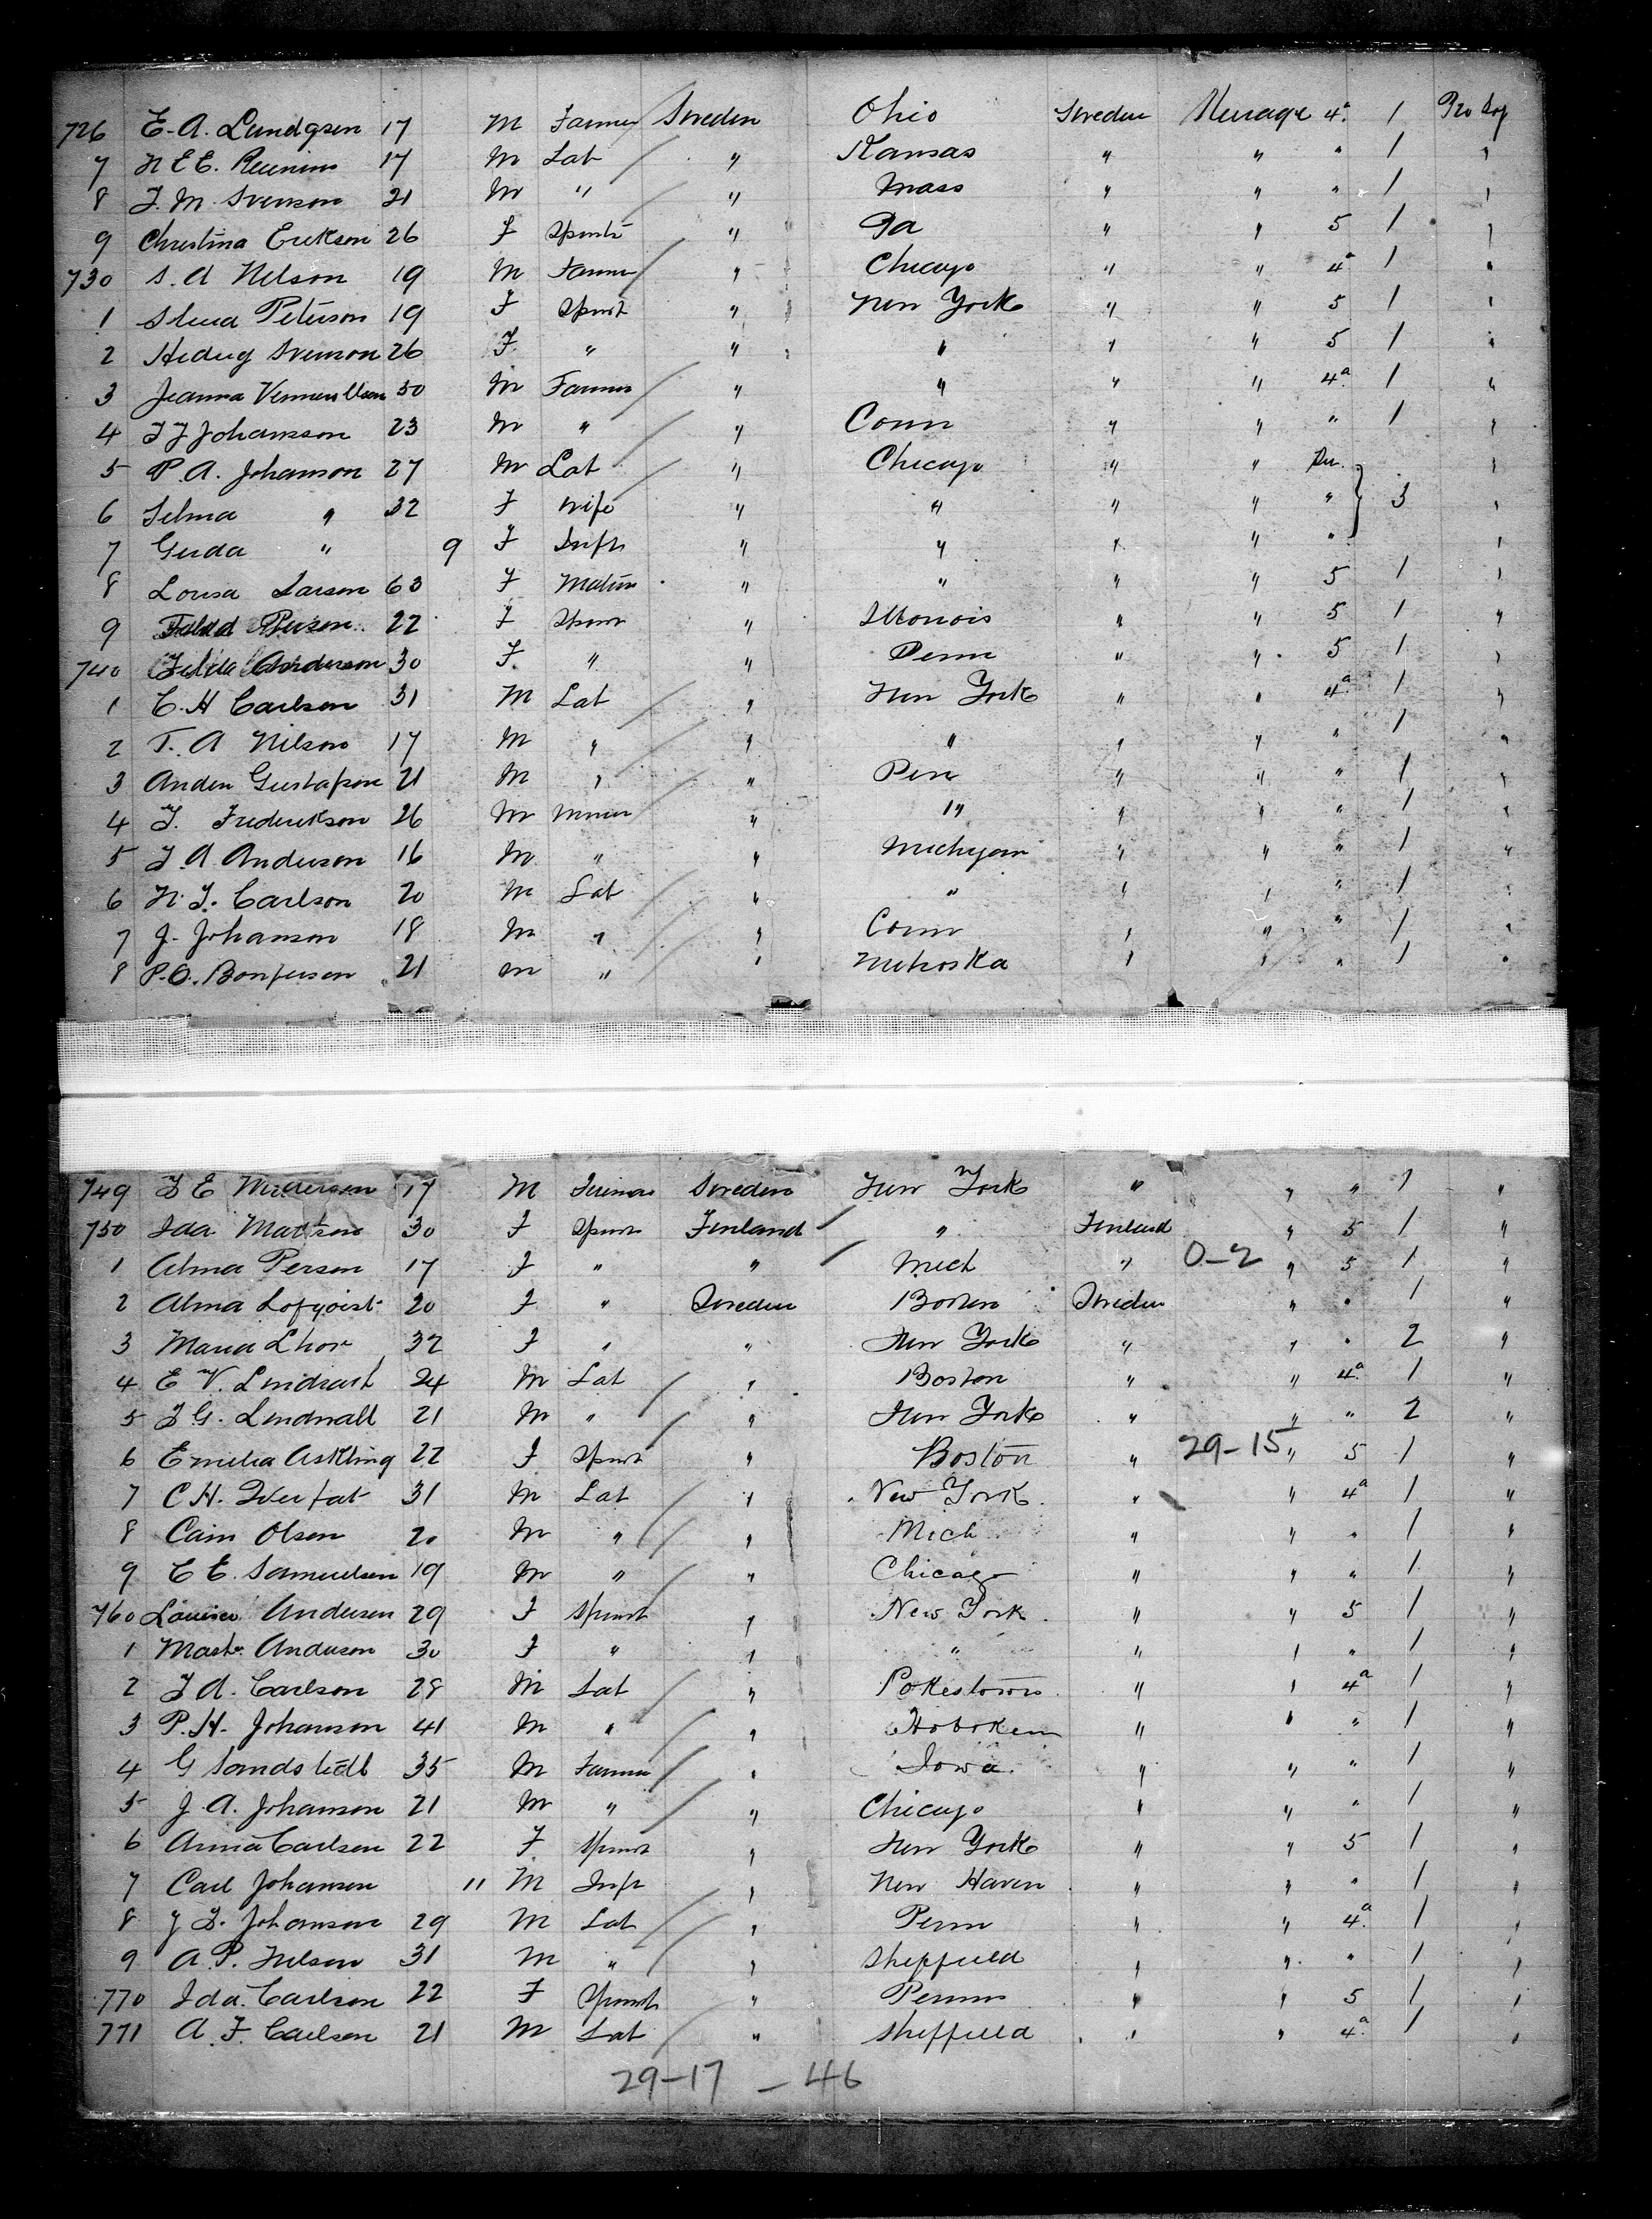 726 E. A. Lundgren 17 M Farmer Sweden Ohio Sweden Steerage 4a 1
7 N E E. 17 M Lab " Kansas " " " 1 "
8 J. M. Svenson 21 M " " Mass " " " 1 "
9 Christina Erikson 26 F Spinst " Pa " " 5 1 "
730 S. A Nelson 19 M Farmer " Chicago " " 4a 1 "
1 Peterson 19 F Spinst " New York " " 5 1 "
2 Hedvig Svenson 26 F " " " " " 5 1 "
3 50 M Farmer " " " " 4a 1 "
4 J J Johansson 23 M " " Conn " " " 1 "
5 P. A. Johanson 27 M Lab " Chicago " " "
6 Selma " 32 F Wife " " " " " 3 "
7 Gerda " 9 F Inft " " " " " "
8 Lovisa Larson 63 F Matron " " " " 5 1 "
9 22 F Spinst " Illonois " " 5 1 "
740 Anderson 30 F " " Penn " " 5 1 "
1 C. H Carlson 31 M Lab " New York " " 4a 1 "
2 T. A Nilson 17 M " " " " " " 1 "
3 Anders Gustafson 21 M " " Pen " " " 1 "
4 J. Frederikson 26 M Miner " " " " " 1 "
5 J A Anderson 16 M " " Michigan " " " 1 "
6 N. J. Carlson 20 M Lab " " " " " 1 "
7 J. Johanson 18 M " " Conn " " " 1 "
8 P. O. 21 M " " Nebraska " " " 1 "
749 J E 17 M Sweden New York " " " 1 "
750 Ida Mattson 30 F Spinst Finland " Finland " 5 1 "
1 Alma Person 17 F " " Mich " 0-2 " 5 1 "
2 Alma Lofqvist 20 F " Sweden Boston Sweden " " 1 "
3 Maria 32 F " " New York " " " 2 "
4 E V. 24 M Lab " Boston " " 4a 1 "
5 J G. Lindwall 21 M " " New York " " " 2 "
6 Emilia Askling 22 F Spinst " Boston " 29-15 " 5 1 "
7 C H. 31 M Lab " New York " " 4a 1 "
8 Olson 20 M " " Mich " " " 1 "
9 C E. Samuelson 19 M " " Chicago " " " 1 "
760 Louise Anderson 29 F Spinst " New York " " 5 1 "
1 Anderson 30 F " " " " " " 1 "
2 J A. Carlson 28 M Lab " Pokestown " " 4a 1 "
3 P. H. Johanson 41 M " " Hoboken " " " 1 "
4 G Sandstedt 35 M Farmer " Iowa " " " 1 "
5 J. A. Johanson 21 M " " Chicago " " " 1 "
6 Anna Carlson 22 F Spinst " New York " " 5 1 "
7 Carl Johanson 11 M Inft " New Haven " " " 1 "
8 J. Johanson 29 M Lab " Penn " " 4a 1 "
9 A. P. Nelson 31 M " " Sheffield " " " 1 "
770 Ida Carlson 22 F Spinst " Penn " " 5 1 "
771 A. F. Carlson 21 M Lab " Sheffield " " 4a 1 "
29-17 - 46